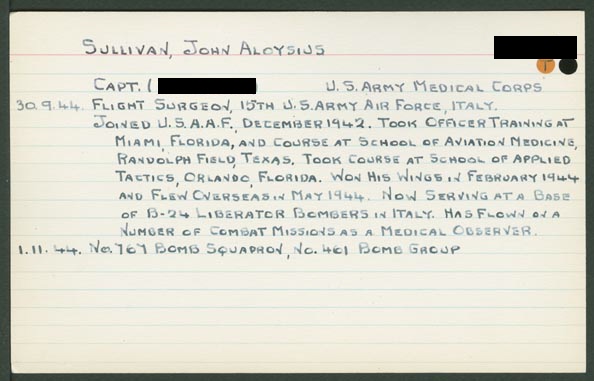 SULLIVAN, JOHN ALOYSIUS
CAPT. ( ) U.S. ARMY MEDICAL CORPS
30.9.44. FLIGHT SURGEON, 15TH U.S. ARMY AIR FORCE, ITALY.
JOINED U.S.A.A.F., DECEMBER 1942. TOOK OFFICER TRAINING AT
MIAMI, FLORIDA, AND COURSE AT SCHOOL OF AVIATION MEDICINE,
RANDOLPH FIELD, TEXAS. TOOK COURSE AT SCHOOL OF APPLIED
TACTICS, ORLANDO, FLORIDA. WON HIS WINGS IN FEBRUARY 1944
AND FLEW OVERSEAS IN MAY 1944. NOW SERVING AT A BASE
OF B-24 LIBERATOR BOMBERS IN ITALY. HAS FLOWN ON A
NUMBER OF COMBAT MISSIONS AS A MEDICAL OBSERVER.
1.11.44. NO. 767 BOMB SQUADRON, NO. 461 BOMB GROUP